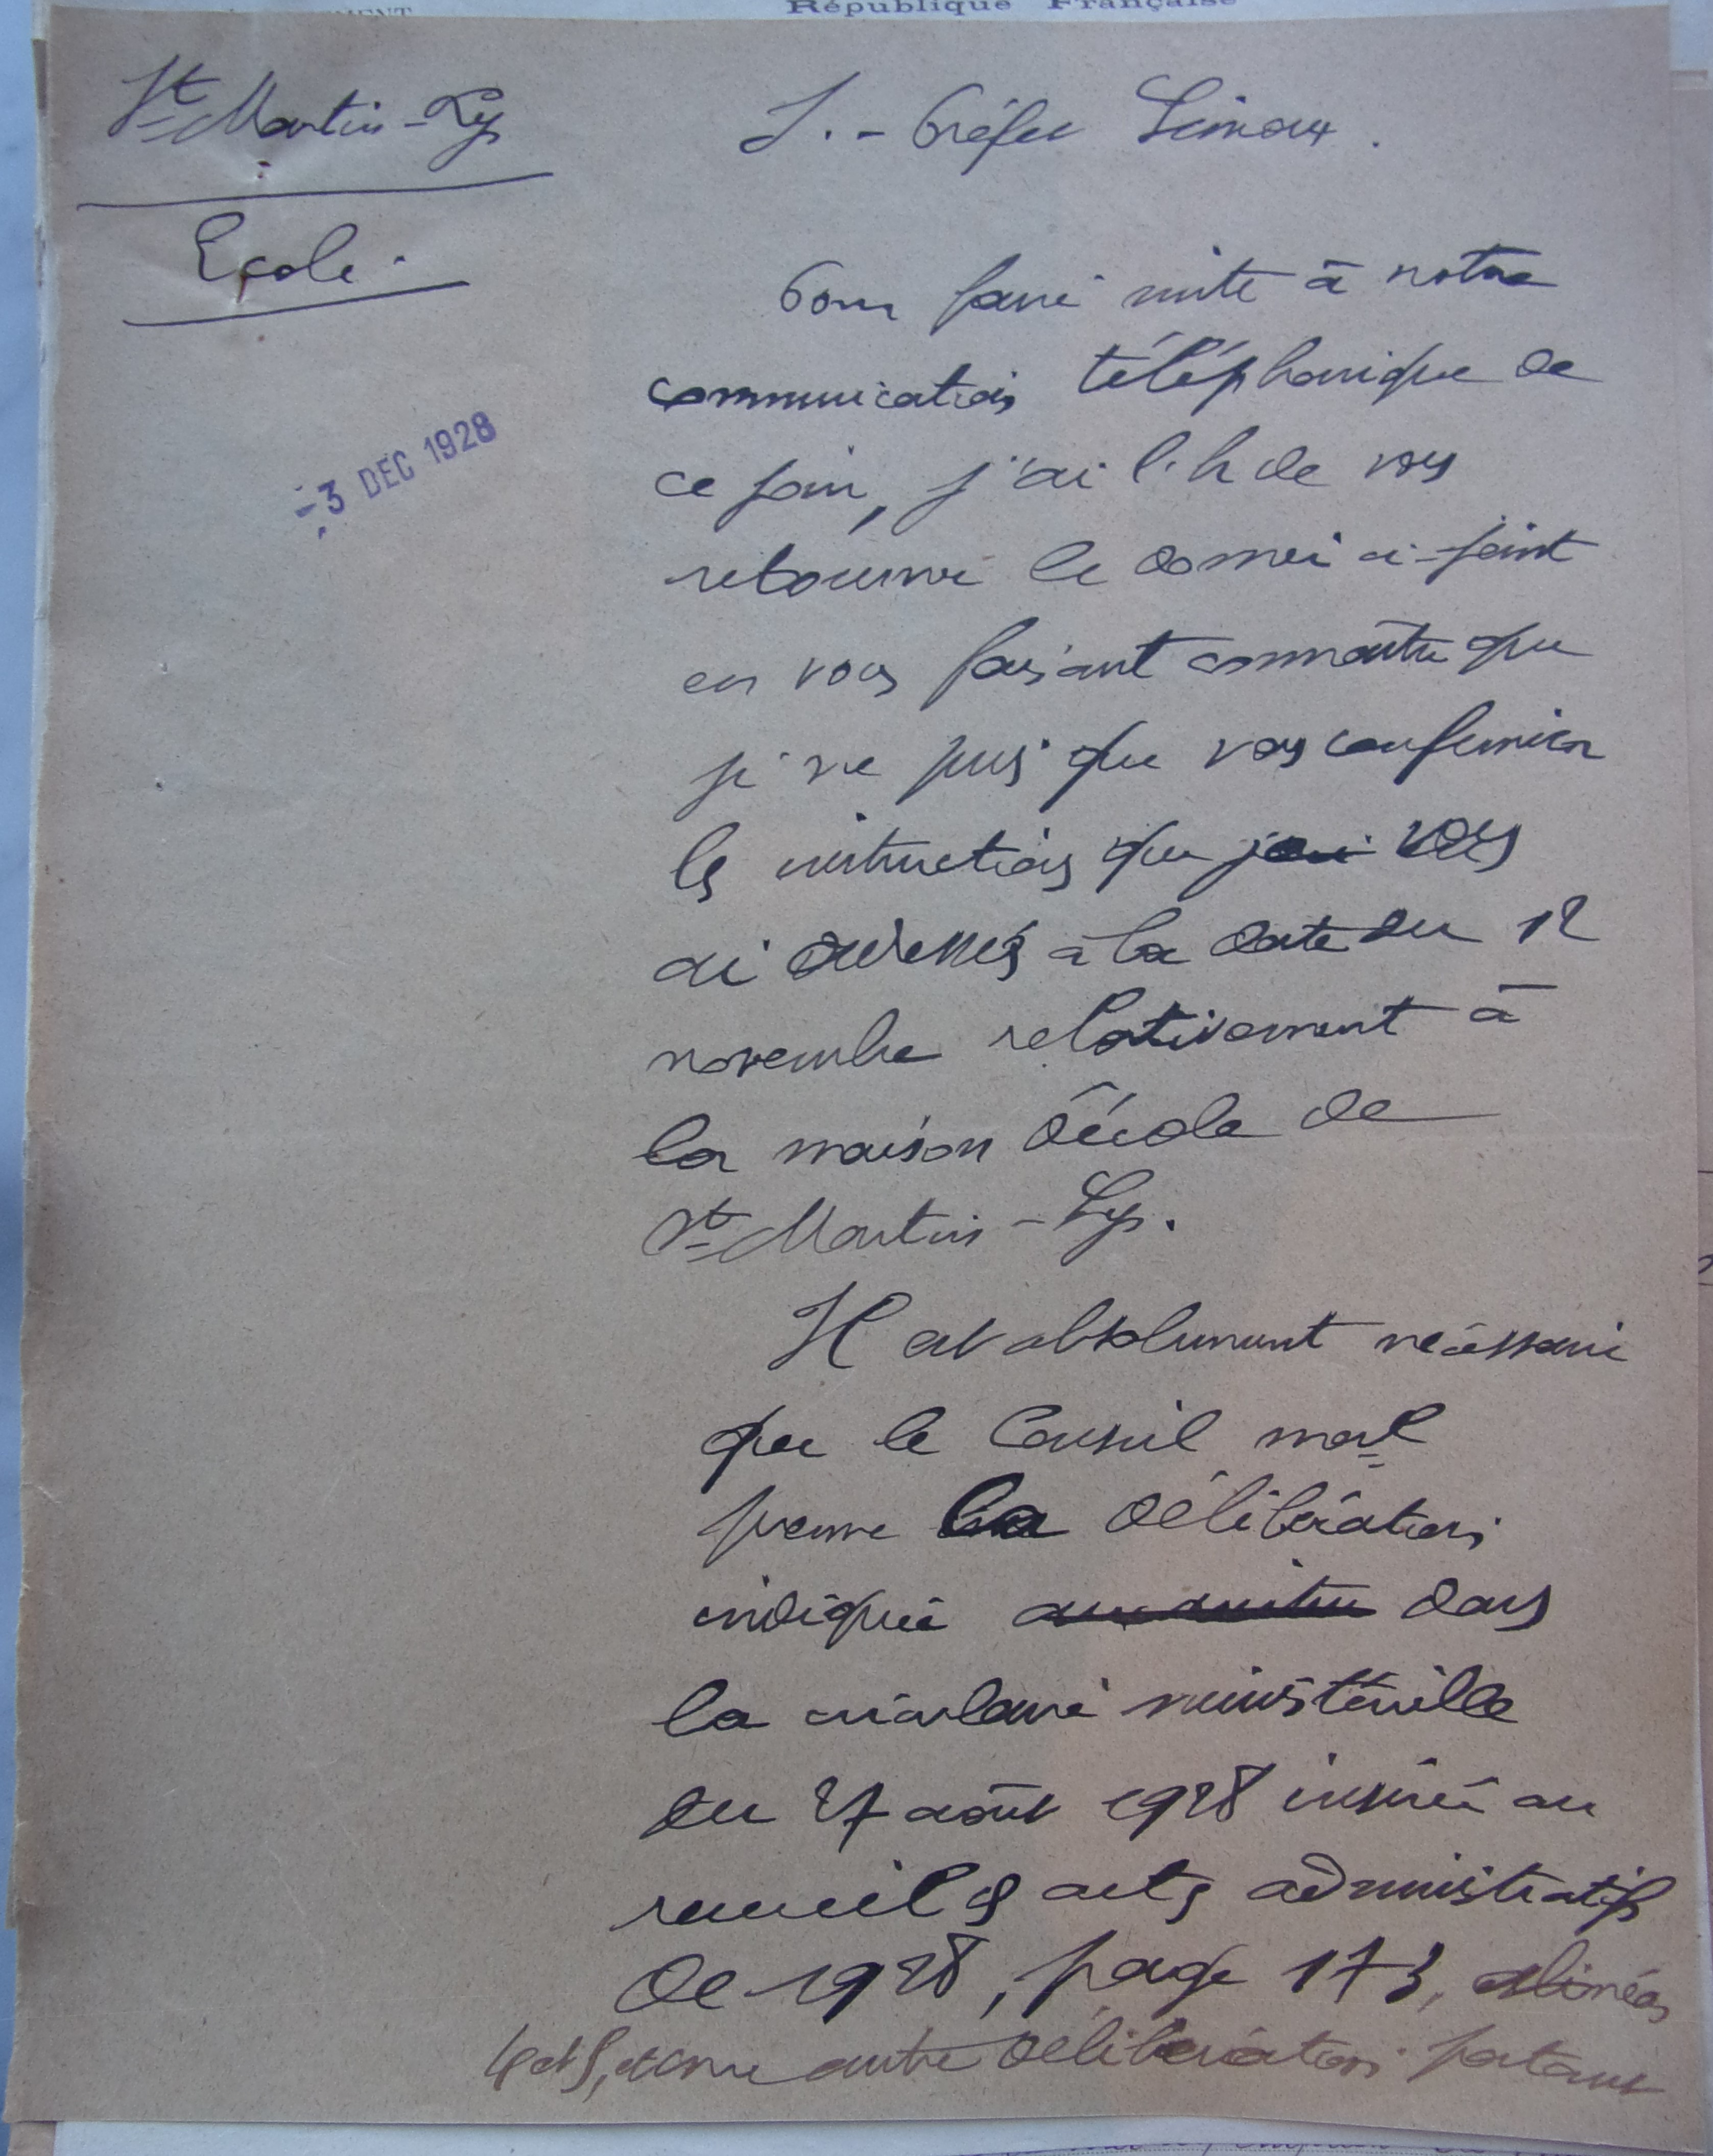 République Française
St Martin-Lys
S.-Préfet Limoux.
Ecole.
Pour faire suite à notre
communication téléphonique de
- 3 DEC 1928
ce jour, j'ai l'h de vous
retourner le dossier ci-joint
en vous faisant connaître que
je ne puis que vous confirmer
les instructions que je vous
ai adressées à la date du 12
novembre relativement à
la maison d'école de
St Martin-Lys.
Il est absolument nécessaire
que le Conseil mal
prenne la délibération
indiquée dans
la circulaire ministérielle
du 27 août 1928 insérée au
recueil des actes administratifs
de 1928, page 173, alinéas
4 et 5, et une autre délibération portant